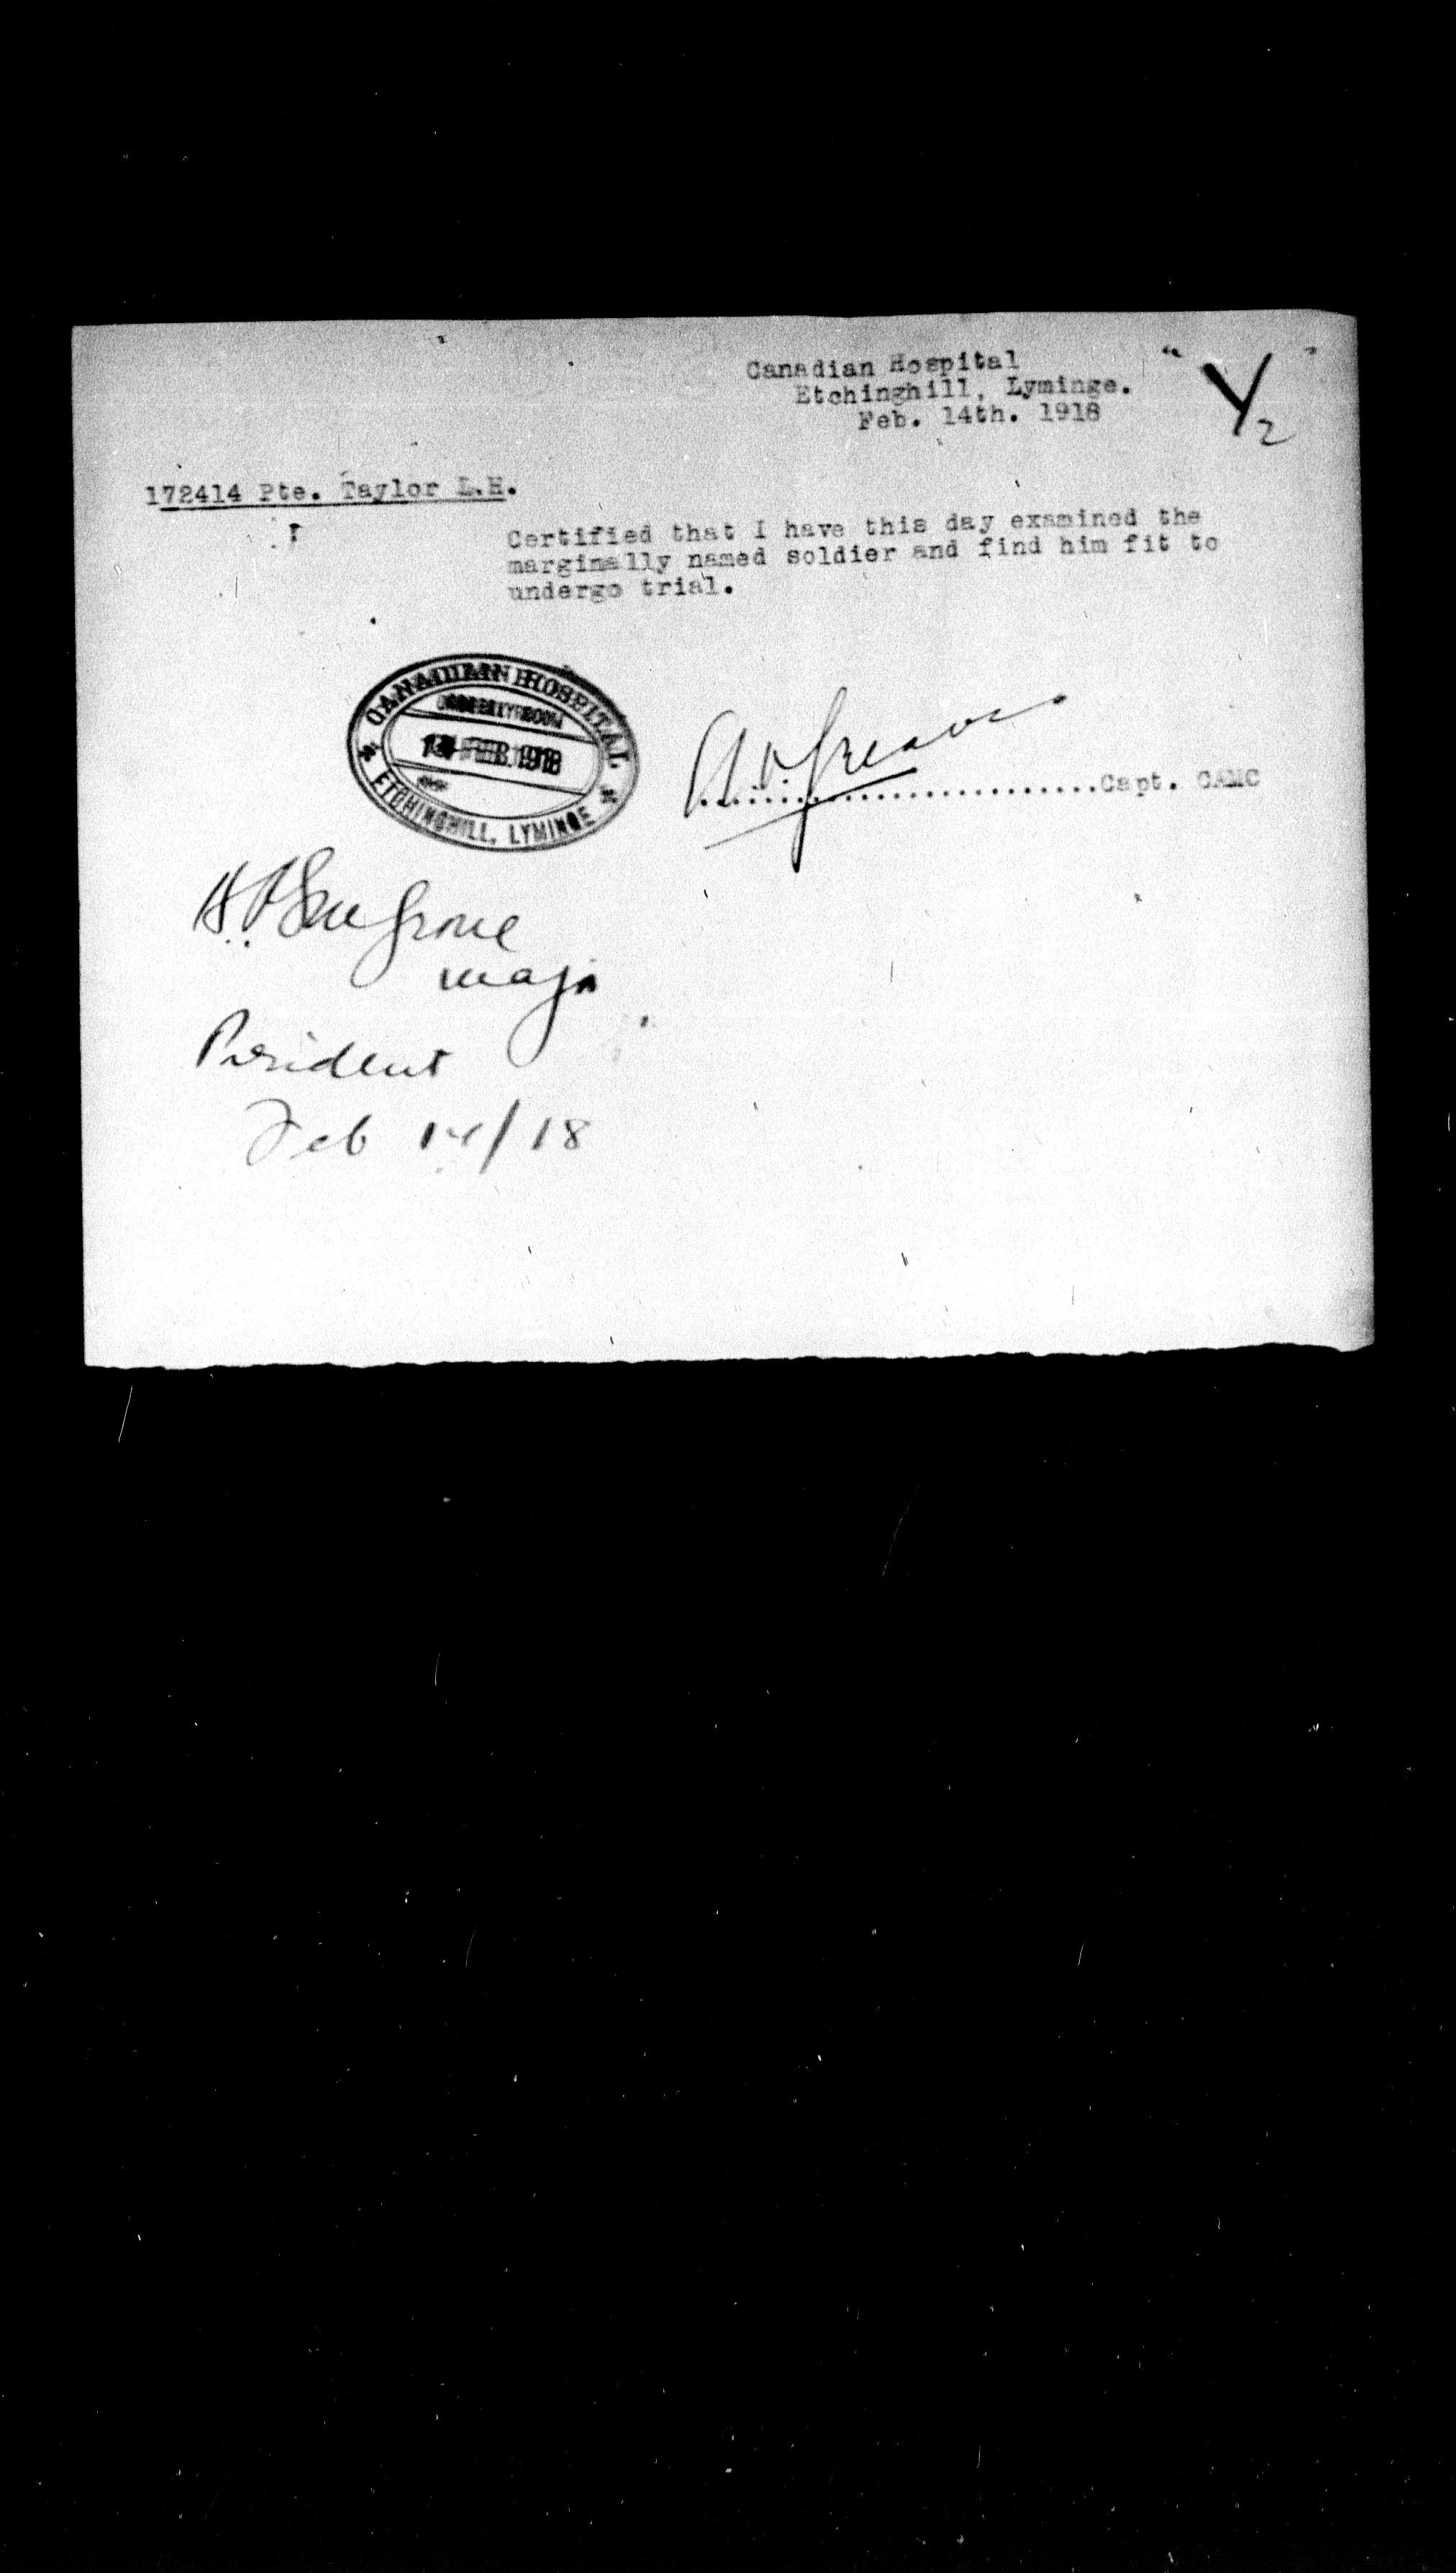 Canadian Hospital
Etchinghill, Lyminge.
Feb. 14th. 1918
"Y2"
172414 Pte. Taylor L.H.
Certified that I have this day examined the
marginally named soldier and find him fit to
undergo trial.
CANADIAN HOSPITAL
ORDERLY ROOM
FEB. 1918
ETCHINGHILL, LYMINGE
Capt. CAMC
Major
President
Feb 14/18